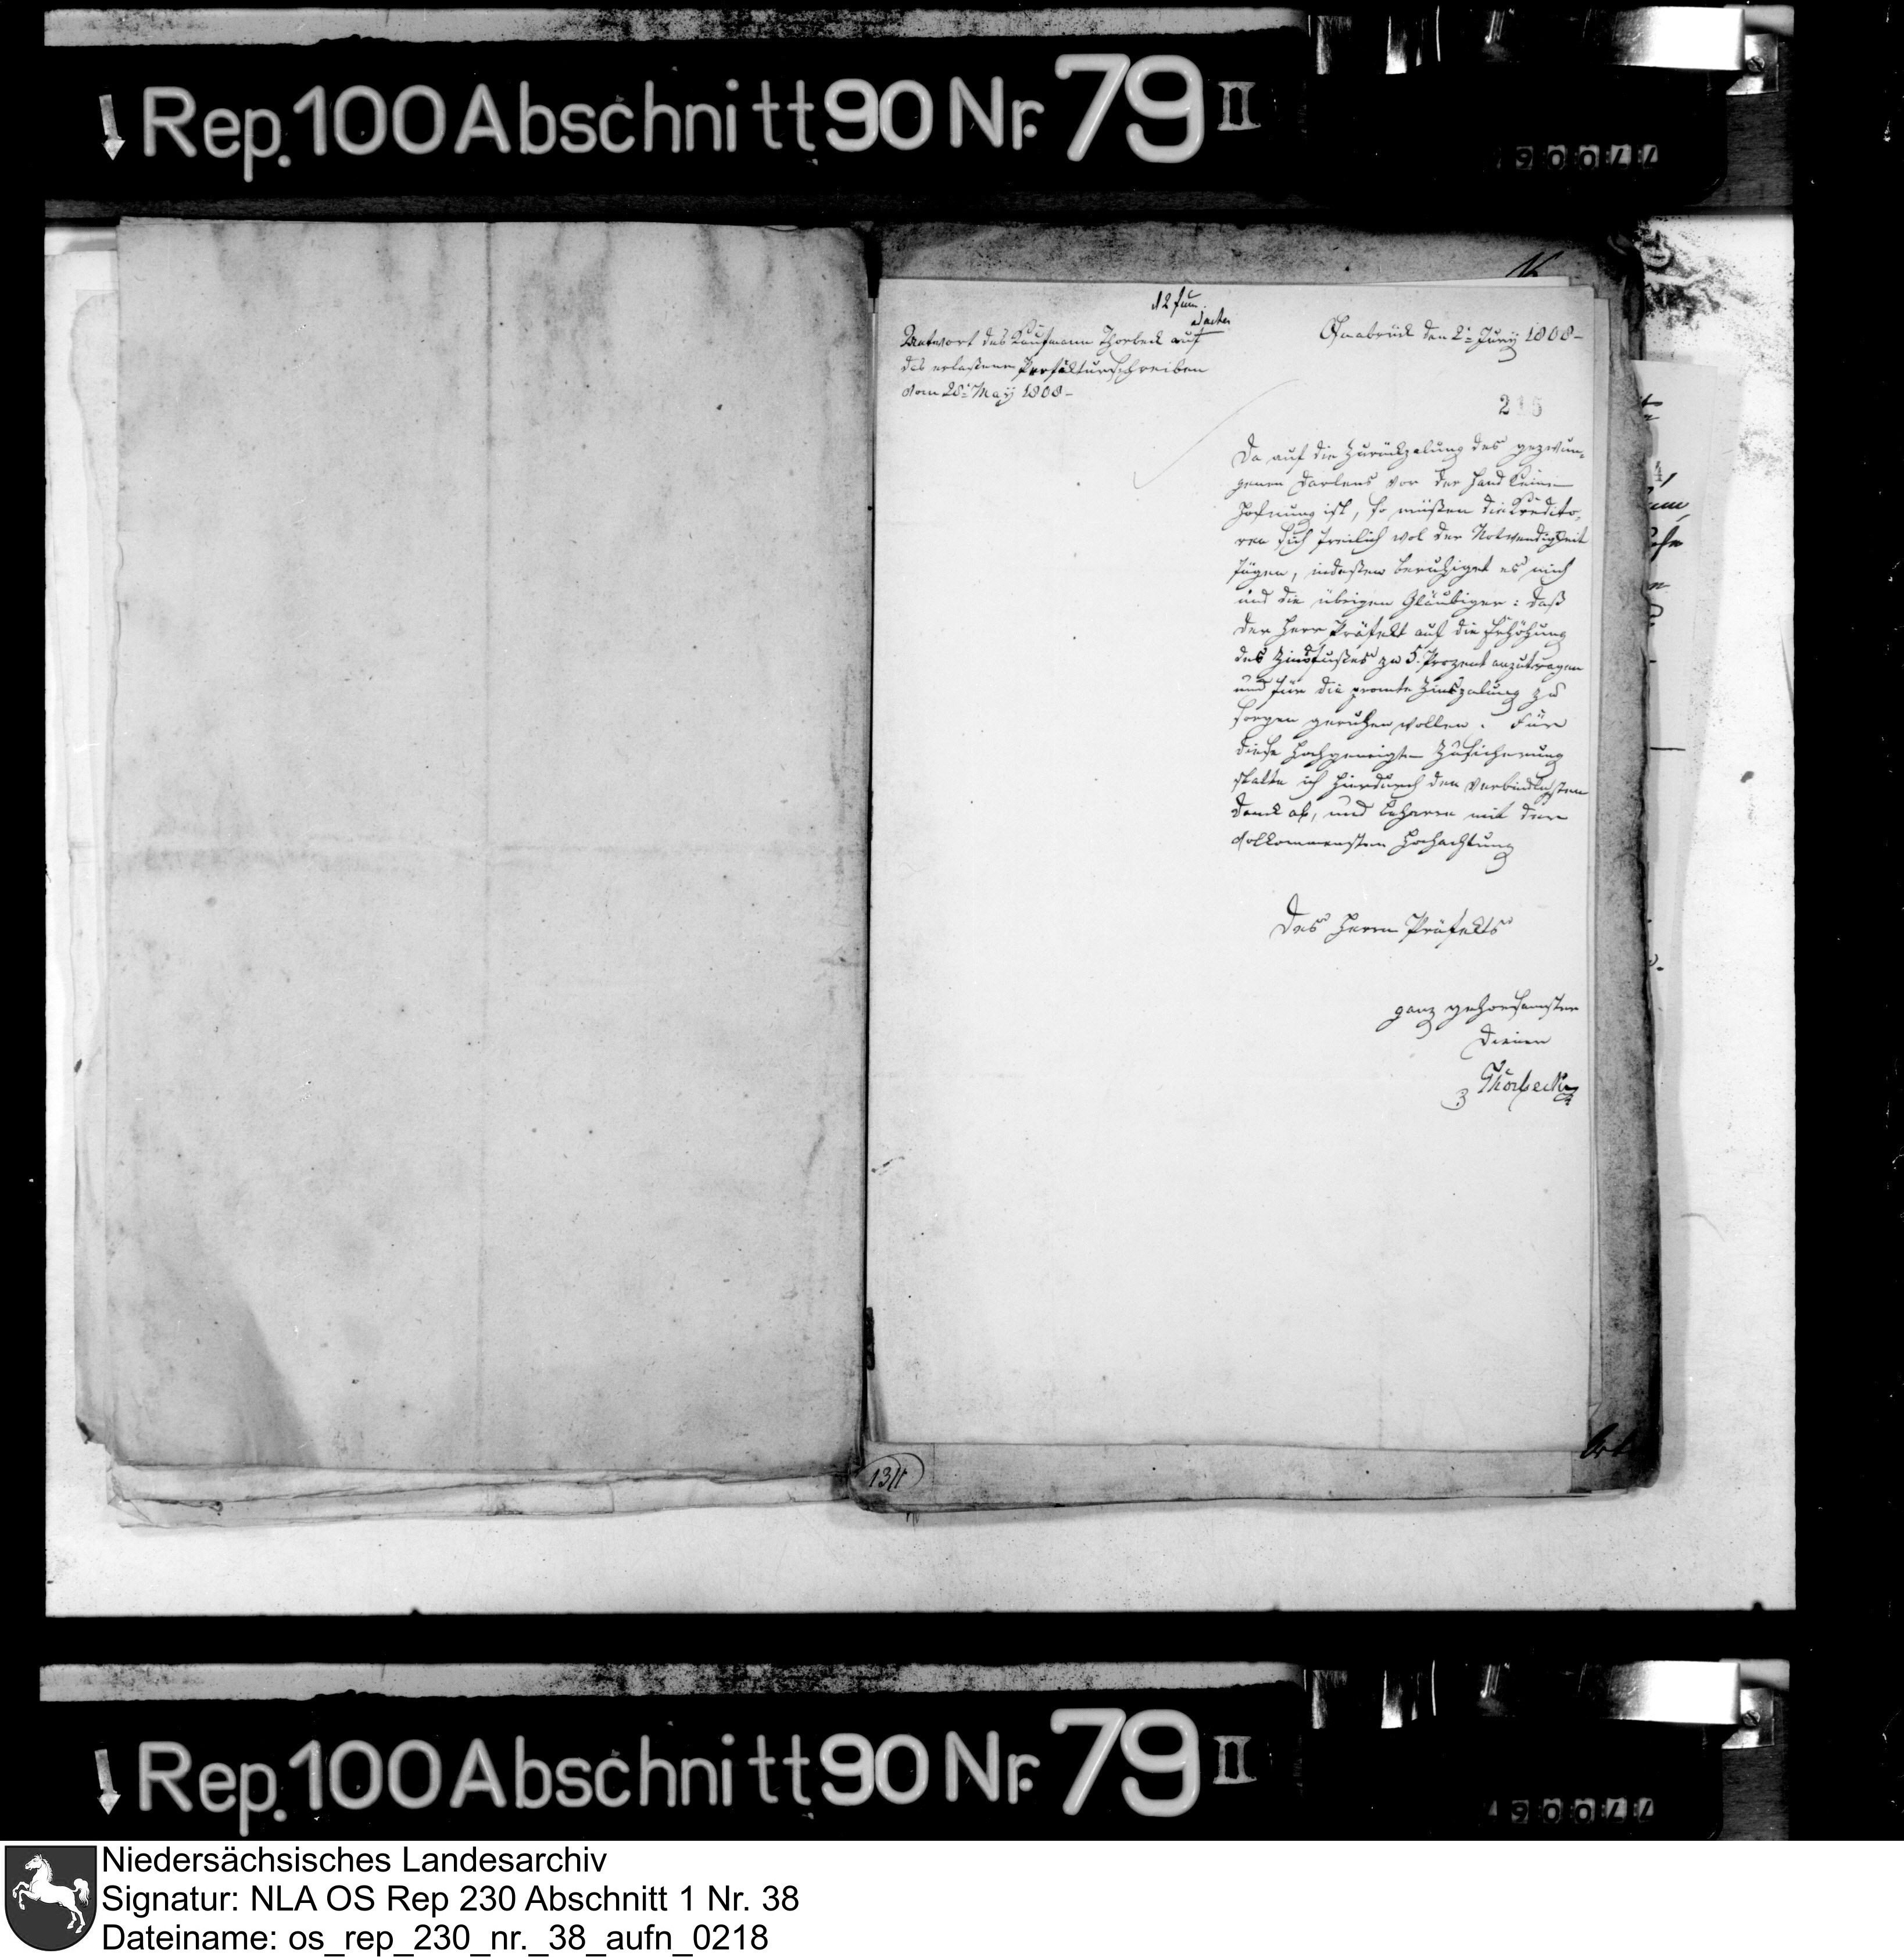 Rep. 100 Abschnitt 90 Nr. 79 II
12 Jun.
ad acta
Antwort des Kaufmann Thorbeck auf
das erlaßene Prefäkturschreiben
vom 28t May 1808 -
Osnabrück den 2t Juny 1808 -
215
Da auf die Zurückzalung des gezwun-
genen Darlens vor der Hand keine
Hofnung ist, so müßen die Kredito-
ren sich freilich wol der Notwendigkeit
fügen, indeßen beruhiget es mich
und die übrigen Gläubiger: daß
der Herr Präfekt auf die Erhöhung
des Zinsfußes zu 5. Prozent anzutragen
und für die promte Zinszalung zu
sorgen geruhen wollen. Für
diese hochgeneigte Zusicherung
statte ich hierdurch den verbindlichsten
Dank ab, und beharre mit der
volkommensten Hochachtung
Des Herrn Präfekts
ganz gehorsamster
Diener
Thorbecke
131
Rep. 100 Abschnitt 90 Nr. 79 II
Niedersächsisches Landesarchiv
Signatur: NLA OS Rep 230 Abschnitt 1 Nr. 38
Dateiname: os_rep_230_nr._38_aufn_0218